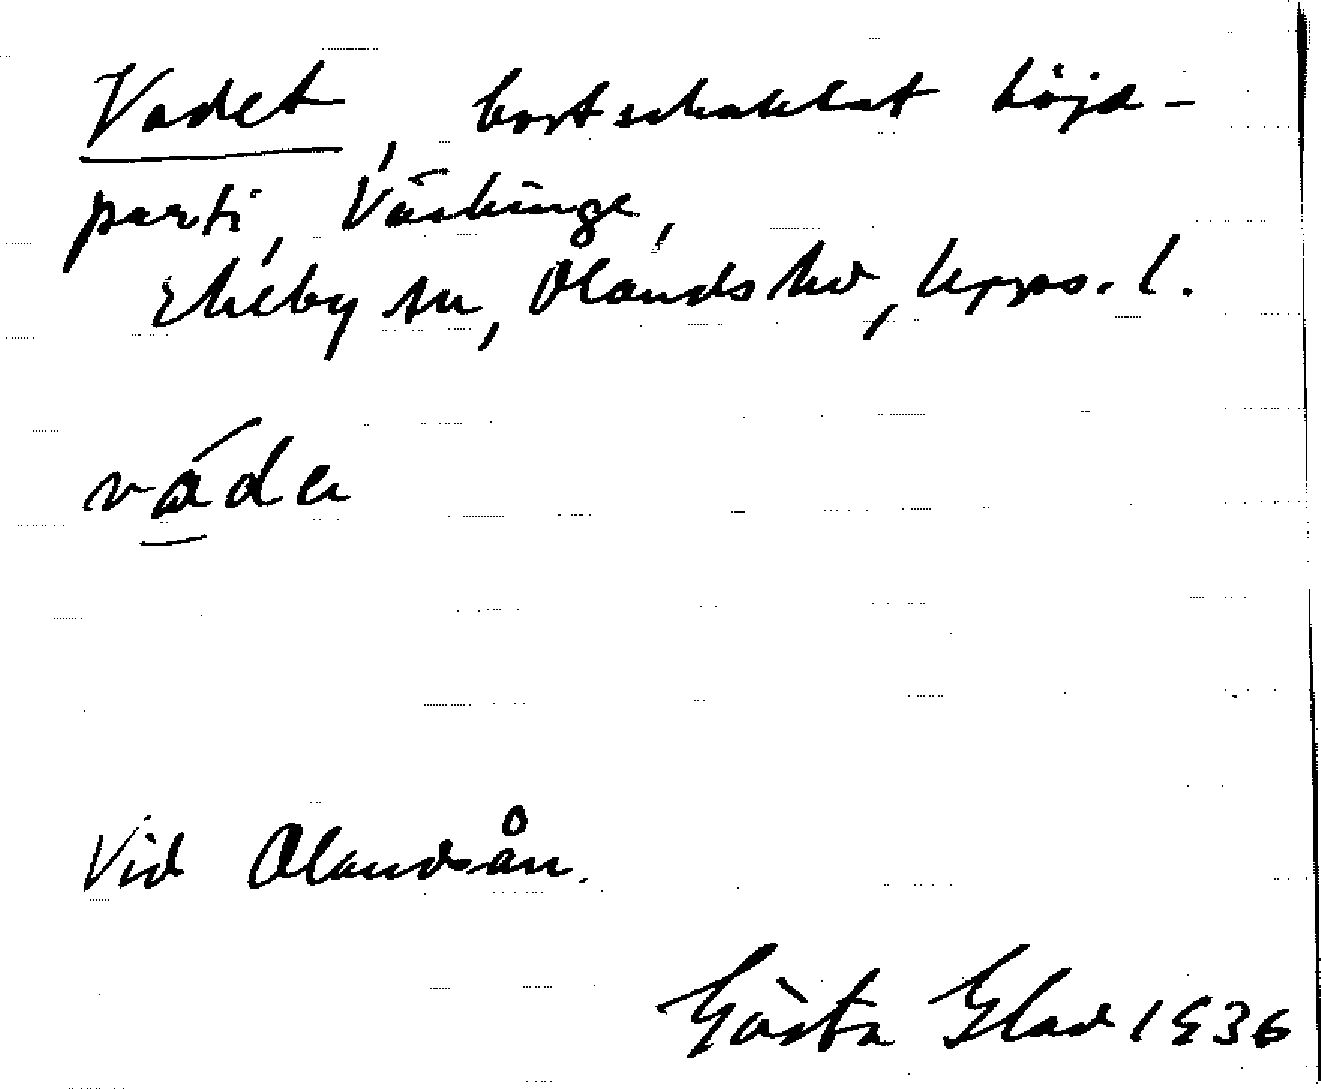 Vadet, bortschaktat höjd-
parti, Väskinge,
Ekeby sn, Olands hd, Upps. l.
váde
Vid Olandsån.
Gösta Glad 1936